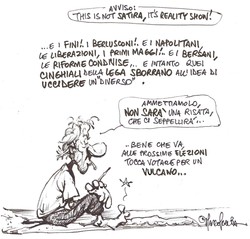 AVVISO:
"THIS IS NOT SATIRA, IT'S REALITY SHOW!
...E I FINI!.. I BERLUSCONI!.. E I NAPOLITANI,
LE LIBERAZIONI, I PRIMI MAGGI!.. E I BERSANI,
LE RIFORME CONDIVISE... E INTANTO QUEI
CINGHIALI DELLA LEGA SBORRANO ALL'IDEA DI
UCCIDERE UN "DIVERSO".
AMMETTIAMOLO,
NON SARÀ UNA RISATA,
CHE CI SEPPELLIRÀ...
..BENE CHE VA,
ALLE PROSSIME ELEZIONI
TOCCA VOTARE PER UN
VULCANO...